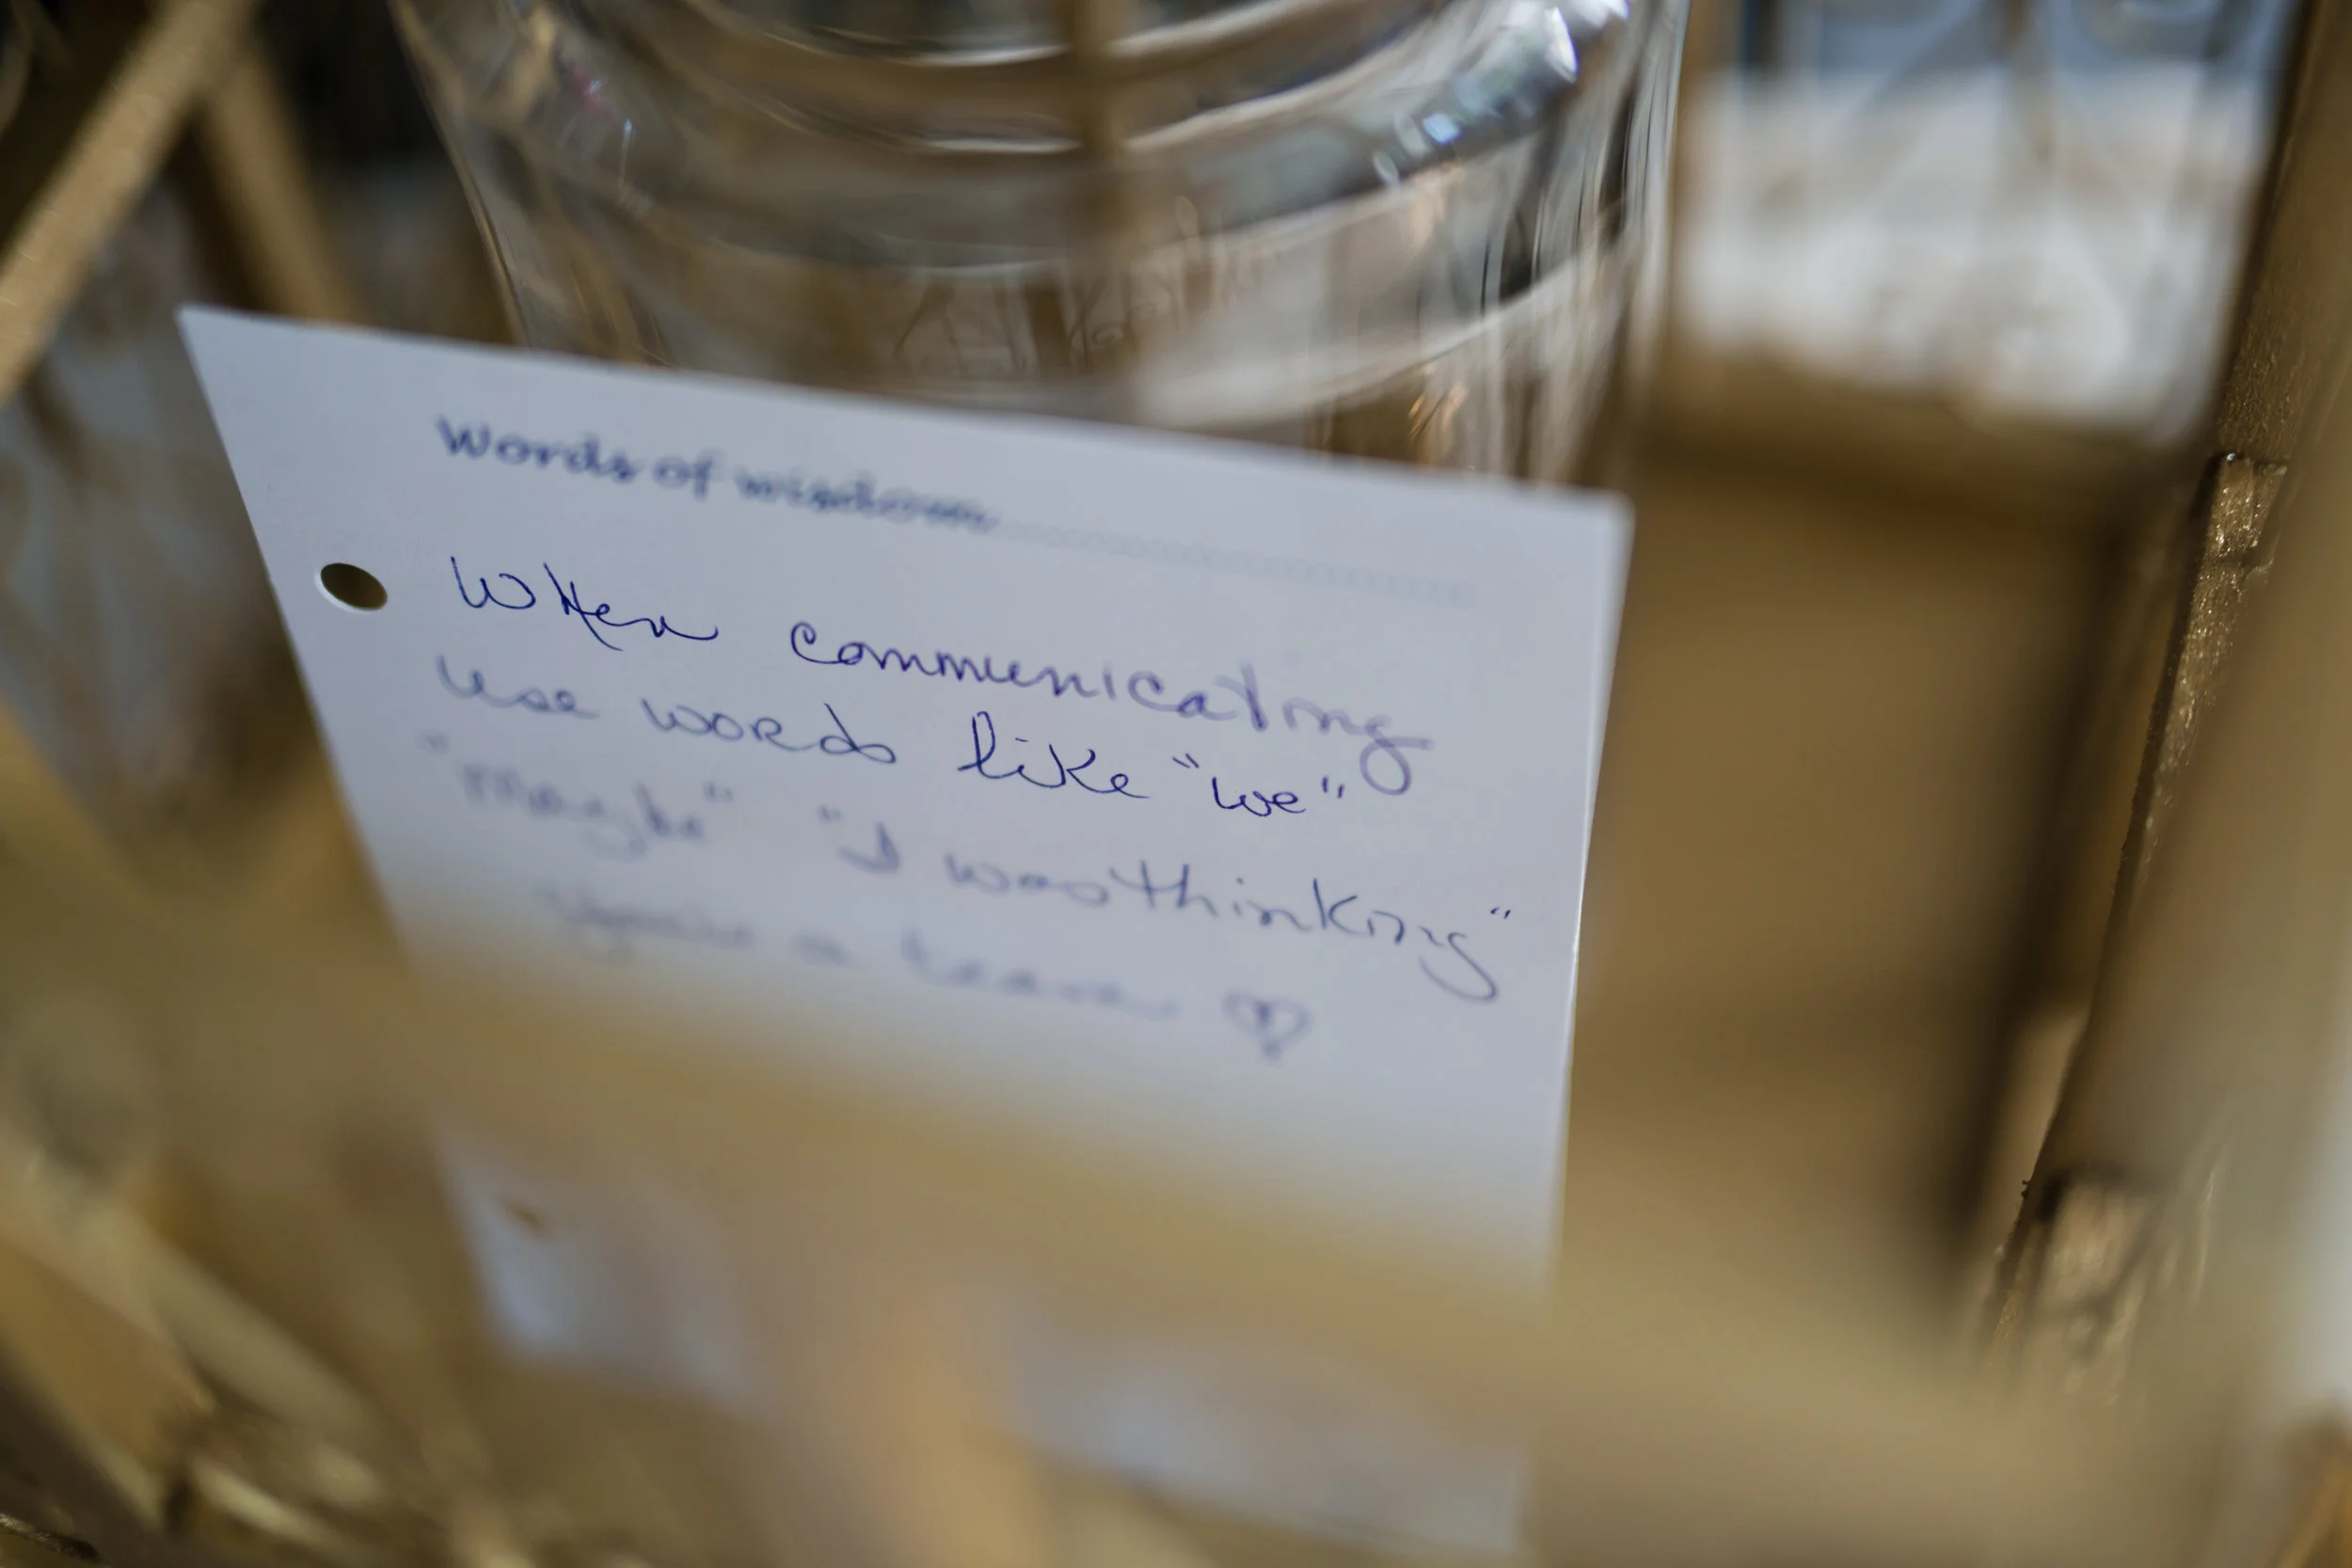 Words of wisdom
When communicating
use words like "we"
"maybe" "I was thinking"
you're a team ♡